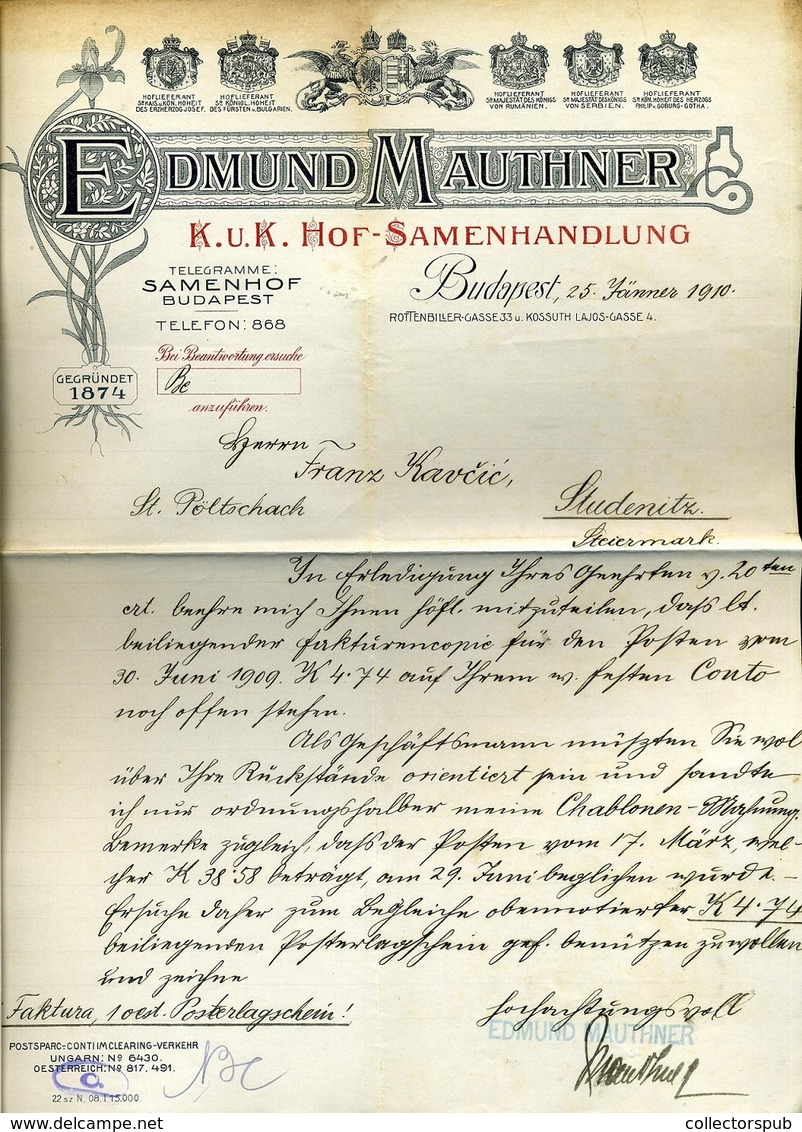 HOFLIEFERANT
Sr KAIS. u. KÖN. HOHEIT
DES ERZHERZOG JOSEF.
HOFLIEFERANT
Sr KÖNIGL. HOHEIT
DES FÜRSTEN v. BULGARIEN.
HOFLIEFERANT
Sr MAJESTÄT DES KÖNIGS
VON RUMÄNIEN.
HOFLIEFERANT
Sr MAJESTÄT DES KÖNIGS
VON SERBIEN.
HOFLIEFERANT
Sr KÖN. HOHEIT DES HERZOGS
PHILIP v. COBURG-GOTHA.
EDMUND MAUTHNER
K. u. K. HOF-SAMENHANDLUNG
TELEGRAMME:
SAMENHOF
BUDAPEST
TELEFON: 868
Budapest, 25. Jänner 1910.
ROTTENBILLER-GASSE 33 u. KOSSUTH LAJOS-GASSE 4.
Bei Beantwortung ersuche
Be
anzuführen.
GEGRÜNDET
1874
Herrn
Franz Kavčić,
St. Pöltschach
Studenitz.
Steiermark.
In Erledigung Ihres Geehrten v. 20ten
crt. beehre mich Ihnen höfl. mitzuteilen, dass lt.
beiliegender Fakturencopie für den Posten vom
30. Juni 1909. K 4·74 auf Ihrem w. festen Conto
noch offen stehen.
Als Geschäftsmann müszten Sie wol
über Ihre Rückstände orientiert sein und sandte
ich nur ordnungshalber meine Chablonen-Mahnung.
Bemerke zugleich, dass der Posten vom 17. März, wel-
cher K 38·58 beträgt, am 29. Juni beglichen wurde.-
Ersuche daher zum Begleiche obennotierter K 4·74
beiliegenden Posterlagschein gef. benützen zu wollen
und zeichne
Faktura, 1 oest. Posterlagschein!
hochachtungsvoll
EDMUND MAUTHNER
Mauthner
POSTSPARC.-CONTI IM CLEARING-VERKEHR
UNGARN: No 6430.
OESTERREICH: No 817.491.
a.
22 sz N. 08. I 15.000.
collectorspub